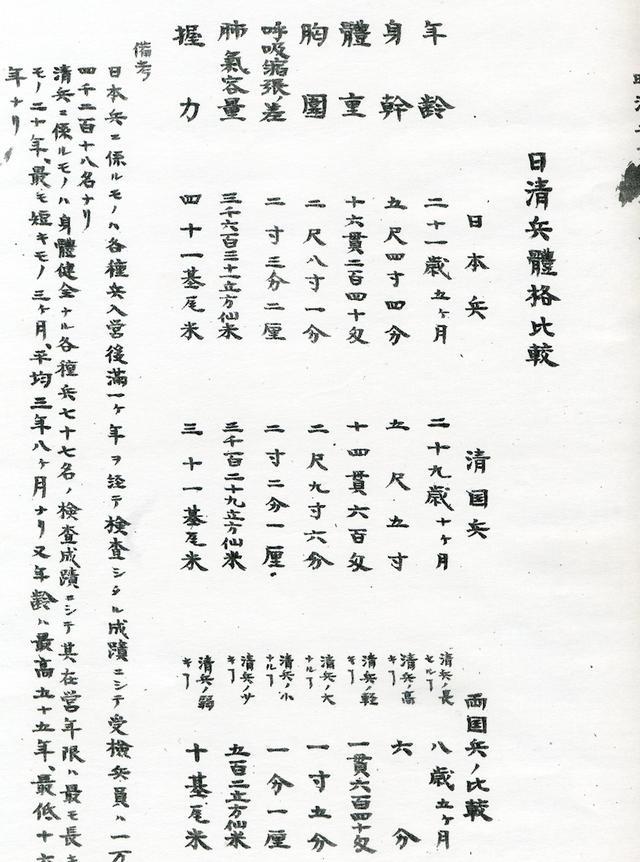 日清兵體格比較
日本兵 清国兵 両国兵ノ比較
年齢 二十一歳五ヶ月 二十九歳十ヶ月 清兵ノ長セルヿ 八歳五ヶ月
身幹 五尺四寸四分 五尺五寸 清兵ノ高キヿ 六分
體重 十六貫二百四十匁 十四貫六百匁 清兵ノ軽キヿ 一貫六百四十匁
胸圍 二尺八寸一分 二尺九寸六分 清兵ノ大ナルヿ 一寸五分
呼吸縮張ノ差 二寸三分二厘 二寸二分一厘 清兵ノ小ナルヿ 一分一厘
肺氣容量 三千六百三十一立方仙米 三千百二十九立方仙米 清兵ノ少キヿ 五百二立方仙米
握力 四十一基尾米 三十一基尾米 清兵ノ弱キヿ 十基尾米
備考
日本兵ニ係ルモノハ各種兵入営後満一ヶ年ヲ経テ検査シタル成蹟ニシテ受検兵員ハ一万
四千二百十八名ナリ
清兵ニ係ルモノハ身體健全ナル各種兵七十七名ノ検査成蹟ニシテ其在営年限ハ最モ長キ
モノ二十年、最モ短キモノ三ヶ月、平均三年八ヶ月ナリ又年齢ハ最高五十五年、最低十六
年ナリ